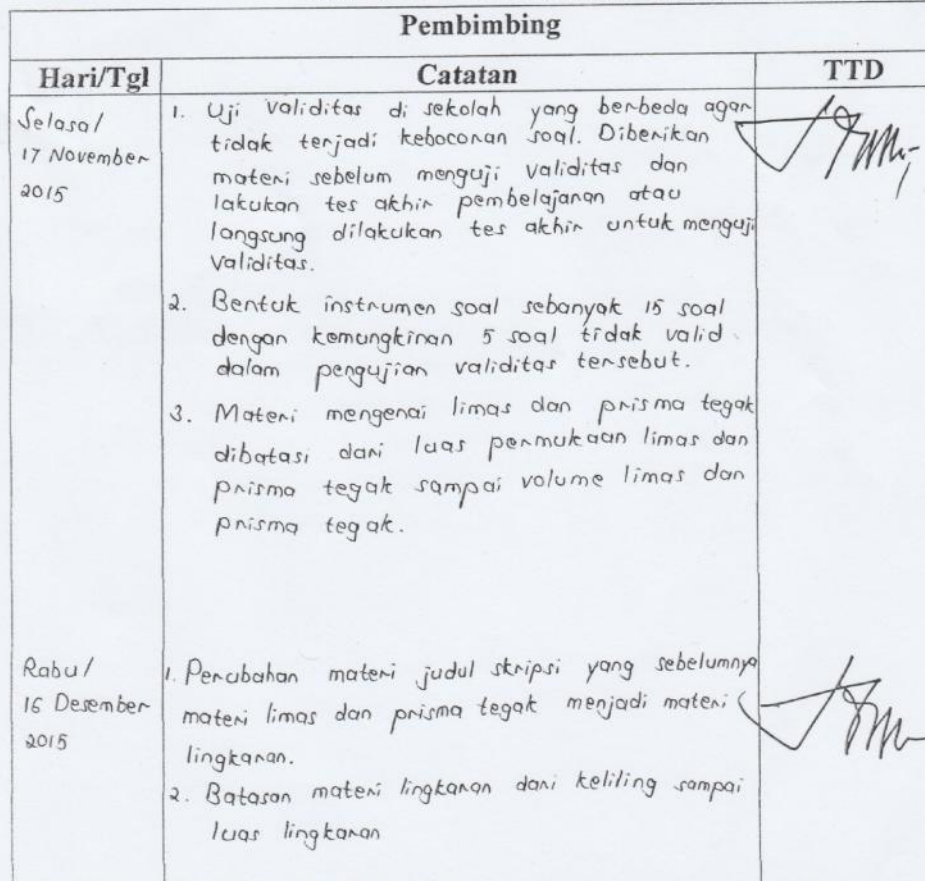 Pembimbing
Hari/Tgl
Catatan
TTD
Selasa/
17 November
2015
1. Uji validitas di sekolah yang berbeda agar
tidak terjadi kebocoran soal. Diberikan
materi sebelum menguji validitas dan
lakukan tes akhir pembelajaran atau
langsung dilakukan tes akhir untuk menguji
validitas.
2. Bentuk instrumen soal sebanyak 15 soal
dengan kemungkinan 5 soal tidak valid
dalam pengujian validitas tersebut.
3. Materi mengenai limas dan prisma tegak
dibatasi dari luas permukaan limas dan
prisma tegak sampai volume limas dan
prisma tegak.
Rabu/
16 Desember
2015
1. Perubahan materi judul skripsi yang sebelumnya
materi limas dan prisma tegak menjadi materi
lingkaran.
2. Batasan materi lingkaran dari keliling sampai
luas lingkaran